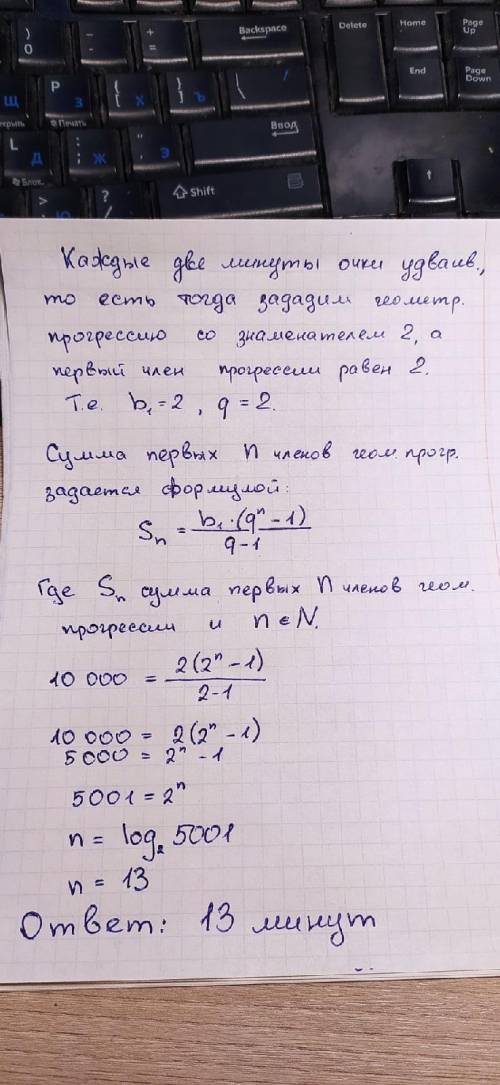 ) 0
- -
+ =
Backspace
Delete
Home
Page Up
End
Page Down
Щ
P З
{ [ Х
} ] Ъ
\ /
L Д
: ; Ж
" ' Э
Печать
Ввод
Блок.
>
? /
Shift
Каждые две минуты очки удваив.,
то есть тогда зададим геометр.
прогрессию со знаменателем 2, а
первый член прогрессии равен 2.
Т.е. b₁ = 2 , q = 2.
Сумма первых n членов геом. прогр.
задается формулой:
Sₙ = b₁·(qⁿ - 1) / q - 1
Где Sₙ сумма первых n членов геом.
прогрессии и n ∈ N.
10 000 = 2(2ⁿ - 1) / 2 - 1
10 000 = 2(2ⁿ - 1)
5 000 = 2ⁿ - 1
5001 = 2ⁿ
n = log₂ 5001
n = 13
Ответ: 13 минут